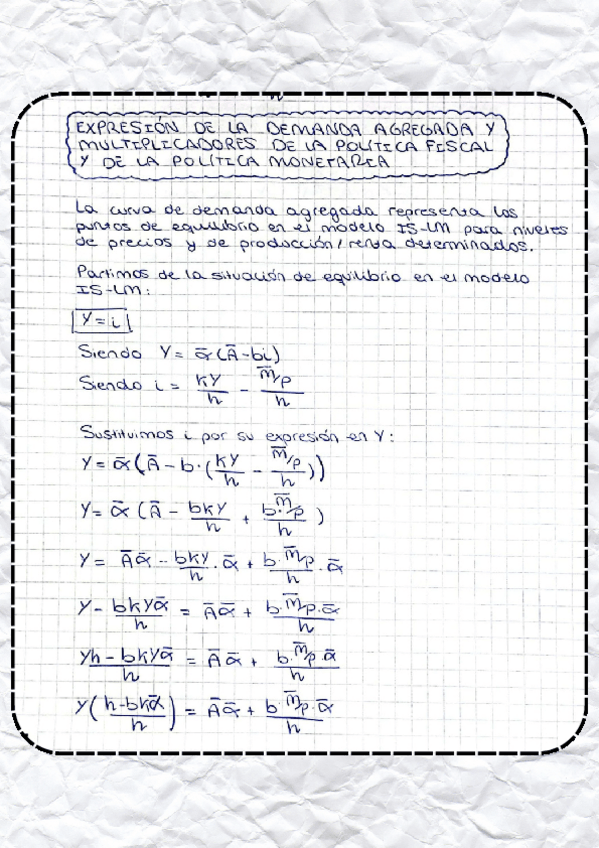 EXPRESIÓN DE LA DEMANDA AGREGADA Y
MULTIPLICADORES DE LA POLÍTICA FISCAL
Y DE LA POLÍTICA MONETARIA
La curva de demanda agregada representa los
puntos de equilibrio en el modelo IS-LM para niveles
de precios y de producción/renta determinados.
Partimos de la situación de equilibrio en el modelo
IS-LM:
Y = i
Siendo Y = ᾱ(Ā - bi)
Siendo i = kY/h - (m̄/p)/h
Sustituimos i por su expresión en Y:
Y = ᾱ(Ā - b·(kY/h - (m̄/p)/h))
Y = ᾱ(Ā - bkY/h + (b·m̄/p)/h)
Y = Āᾱ - bkY/h·ᾱ + (b·m̄/p)/h·ᾱ
Y - bkYᾱ/h = Āᾱ + (b·m̄/p·ᾱ)/h
(Yh - bkYᾱ)/h = Āᾱ + (b·m̄/p·ᾱ)/h
Y((h - bkᾱ)/h) = Āᾱ + (b·m̄/p·ᾱ)/h